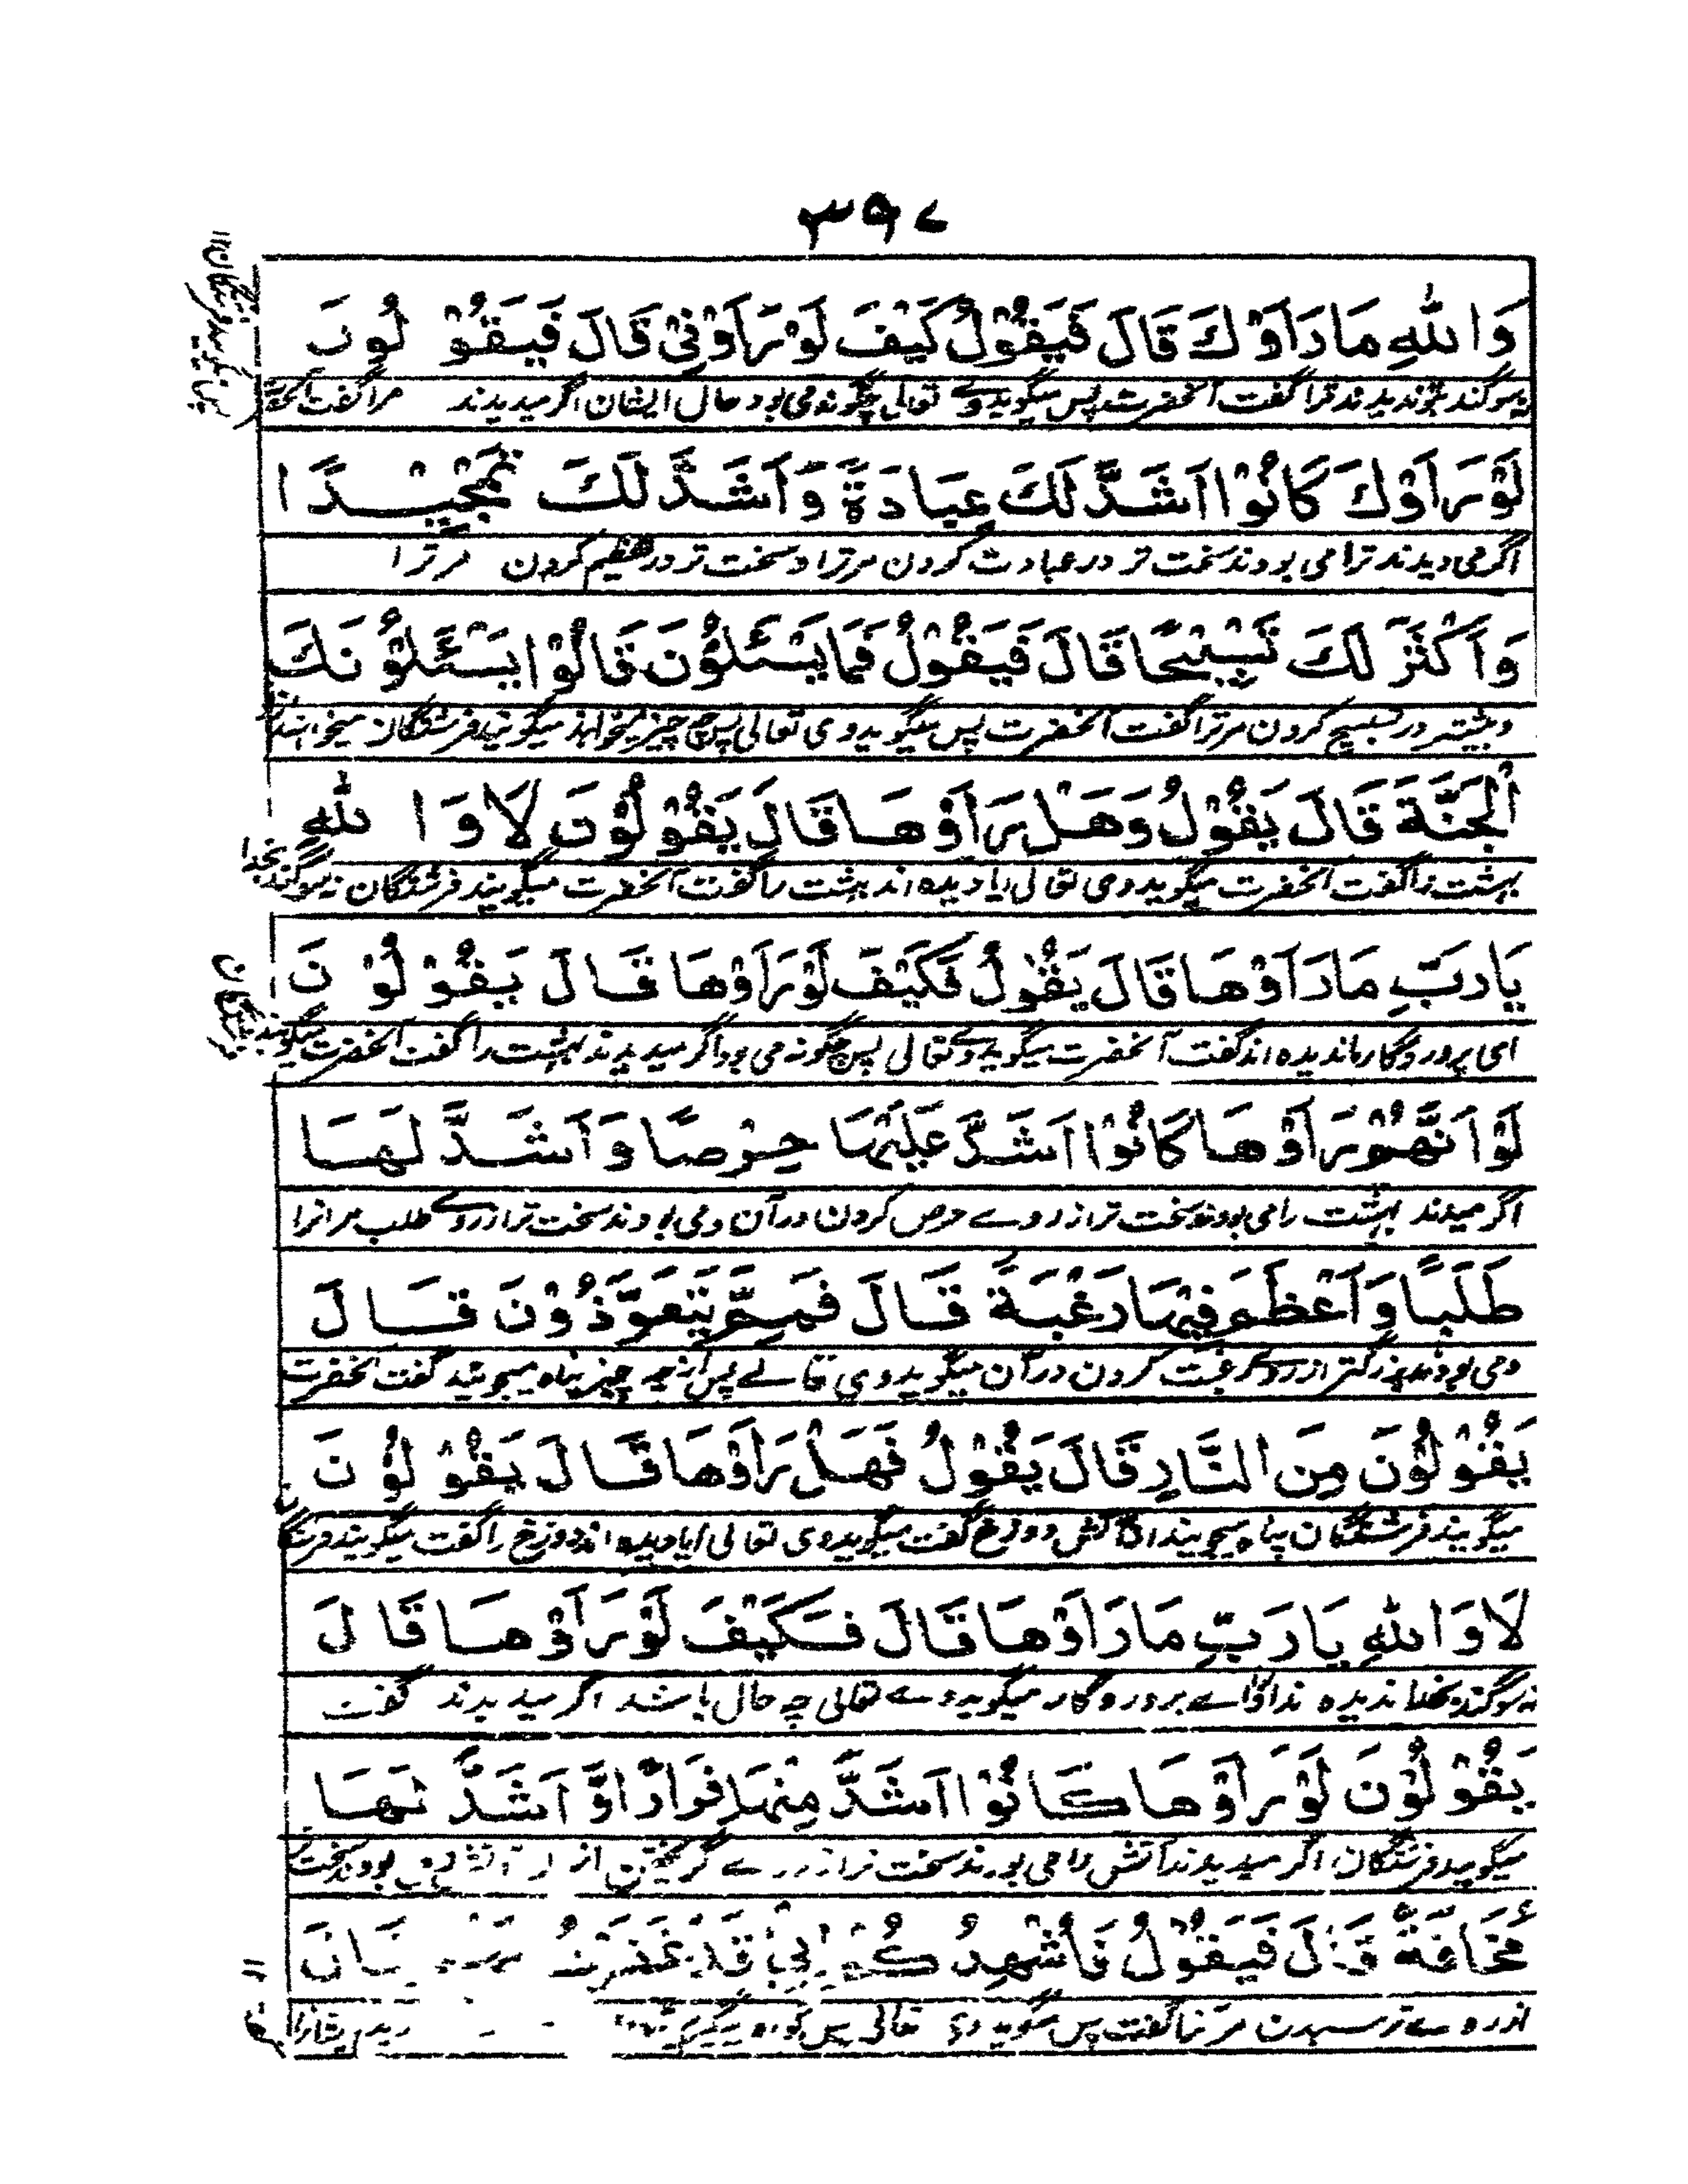 ٣٩٧
وَاللهِ مَا رَاَوْكَ قَالَ فَيَقُوْلُ كَيْفَ لَوْ رَاَوْنِيْ قَالَ فَيَقُوْلُوْنَ
نه سوگند بتو ندیدند ترا گفت آنحضرت پس میگوید وے تعالی چگونه می بود حال ایشان اگر میدیدند مرا گفت آنحضرت
پس میگویند فرشتگان
لَوْ رَاَوْكَ كَانُوْا اَشَدَّ لَكَ عِبَادَةً وَاَشَدَّ لَكَ تَمْجِيْدًا
اگر می دیدند ترا می بودند سخت تر در عبادت کردن مر ترا و سخت تر در تعظیم کردن مر ترا
وَاَكْثَرَ لَكَ تَسْبِيْحًا قَالَ فَيَقُوْلُ فَمَا يَسْئَلُوْنَ قَالُوْا يَسْئَلُوْنَكَ
و بیشتر در تسبیح کردن مر ترا گفت آنحضرت پس میگوید وی تعالی پس چه چیز میخواهند میگویند فرشتگان میخواهند از تو
اَلْجَنَّةَ قَالَ يَقُوْلُ وَهَلْ رَاَوْهَا قَالَ يَقُوْلُوْنَ لَا وَاللهِ
بهشت را گفت آنحضرت میگوید وی تعالی ایا دیده اند بهشت را گفت آنحضرت میگویند فرشتگان نه سوگند بخدا
يَا رَبِّ مَا رَاَوْهَا قَالَ يَقُوْلُ فَكَيْفَ لَوْ رَاَوْهَا قَالَ يَقُوْلُوْنَ
ای پروردگار ما ندیده اند گفت آنحضرت میگوید وے تعالی پس چگونه می بود اگر میدیدند بهشت را گفت آنحضرت میگویند فرشتگان
لَوْ اَنَّهُمْ رَاَوْهَا كَانُوْا اَشَدَّ عَلَيْهَا حِرْصًا وَاَشَدَّ لَهَا
اگر میدند بهشت را می بودند سخت تر از روے حرص کردن در آن و می بودند سخت تر از روے طلب مر انرا
طَلَبًا وَاَعْظَمَ فِيْهَا رَغْبَةً قَالَ فَمِمَّ يَتَعَوَّذُوْنَ قَالَ
و می بودند بزرگتر از روے رغبت کردن در آن میگوید وی تعالے پس از چه چیز پناه میجویند گفت آنحضرت
يَقُوْلُوْنَ مِنَ النَّارِ قَالَ يَقُوْلُ فَهَلْ رَاَوْهَا قَالَ يَقُوْلُوْنَ
میگویند فرشتگان پناه میجویند از آتش دوزخ گفت میگوید وی تعالی ایا دیده اند دوزخ را گفت میگویند فرشتگان
لَا وَاللهِ يَا رَبِّ مَا رَاَوْهَا قَالَ فَكَيْفَ لَوْ رَاَوْهَا قَالَ
نه سوگند بخدا ندیده اند اورا اے پروردگار میگوید وے تعالی چه حال باشد اگر میدیدند گفت
يَقُوْلُوْنَ لَوْ رَاَوْهَا كَانُوْا اَشَدَّ مِنْهَا فِرَارًا وَّاَشَدَّ لَهَا
میگویند فرشتگان اگر میدیدند آتش را می بودند سخت تر از روے گریختن از بودند سخت
مَخَافَةً قَالَ فَيَقُوْلُ فَاُشْهِدُكُمْ اَنِّيْ قَدْ غَفَرْتُ لَهُمْ قَالَ
از روے ترسیدن مر آنرا گفت پس میگوید وی تعالی پس گواه میگیرم ایشانرا